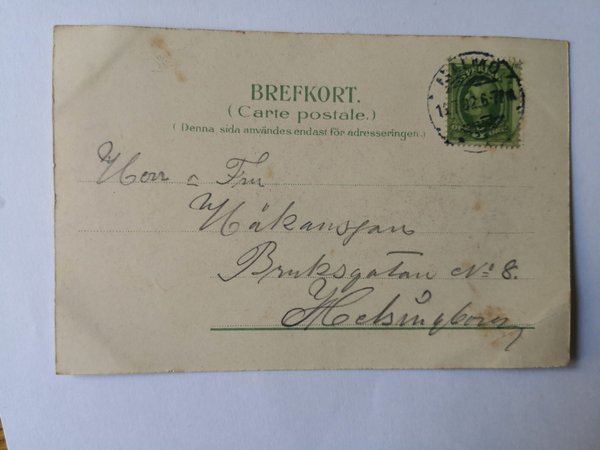 BREFKORT.
(Carte postale.)
(Denna sida användes endast för adresseringen.)
Herr a Fru
Håkansson
Bruksgatan No 8.
Helsingborg